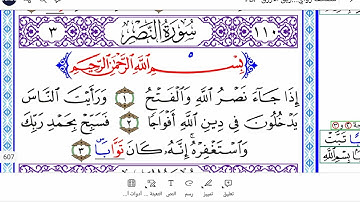 ٣ سُورَةُ النَّصْرِ ١١٠
بِسْمِ ٱللَّهِ ٱلرَّحْمَٰنِ ٱلرَّحِيمِ
إِذَا جَآءَ نَصْرُ ٱللَّهِ وَٱلْفَتْحُ ١ وَرَأَيْتَ ٱلنَّاسَ
يَدْخُلُونَ فِى دِينِ ٱللَّهِ أَفْوَاجًا ٢ فَسَبِّحْ بِحَمْدِ رَبِّكَ
وَٱسْتَغْفِرْهُ ۚ إِنَّهُۥ كَانَ تَوَّابًۢا ٣
607
تعليق تمييز رسم النص التعبئة ... أدوات أ...